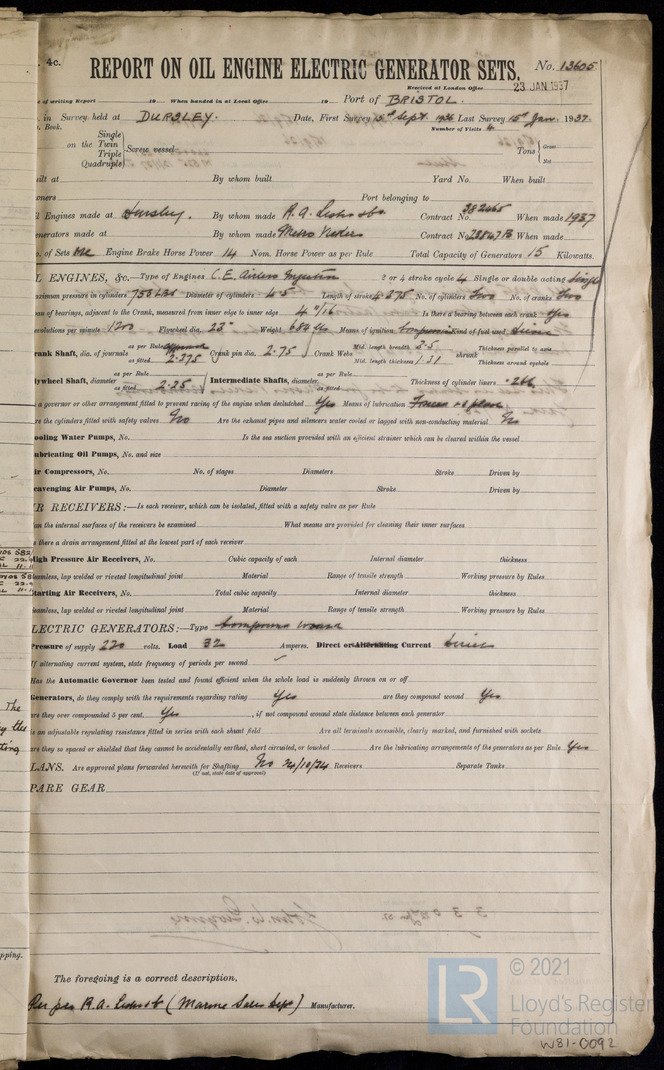 4c.
REPORT ON OIL ENGINE ELECTRIC GENERATOR SETS.
No. 13605
Received at London Office 23 JAN 1937
of writing Report 19 When handed in at Local Office 19 Port of BRISTOL.
in Survey held at DURSLEY. Date, First Survey 15th Sept. 1936 Last Survey 15th Jan. 1937
Book. Number of Visits 4
on the Single Twin Triple Quadruple Screw vessel Tons Gross Net
By whom built Yard No. When built
Port belonging to
Engines made at Dursley. By whom made R. A. Lister & Co. Contract No. 382465 When made 1937
made at By whom made Metro Vickers Contract No. When made
of Sets One Engine Brake Horse Power 14 Nom. Horse Power as per Rule Total Capacity of Generators 15 Kilowatts.
ENGINES, &c.—Type of Engines C.E. Airless Injection 2 or 4 stroke cycle 4 Single or double acting Single
pressure in cylinders 750 LBS Diameter of cylinders 4.5" Length of stroke 4.375 No. of cylinders Two No. of cranks Two
of bearings, adjacent to the Crank, measured from inner edge to inner edge 4 "/16 Is there a bearing between each crank Yes
Revolutions per minute 1200 Flywheel dia. 23" Weight Means of ignition Compression Kind of fuel used
Crank Shaft, dia. of journals as per Rule as fitted 2.375 Crank pin dia. 2.75 Crank Webs Mid. length breadth 2.5 Mid. length thickness 1.31 shrunk Thickness parallel to axis Thickness around eyehole
Flywheel Shaft, diameter as per Rule as fitted 2.25 Intermediate Shafts, diameter as per Rule as fitted Thickness of cylinder liners
a governor or other arrangement fitted to prevent racing of the engine when declutched Yes Means of lubrication Forced & splash
the cylinders fitted with safety valves No Are the exhaust pipes and silencers water cooled or lagged with non-conducting material No
Cooling Water Pumps, No. Is the sea suction provided with an efficient strainer which can be cleared within the vessel
Lubricating Oil Pumps, No. and size
Air Compressors, No. No. of stages Diameters Stroke Driven by
Scavenging Air Pumps, No. Diameter Stroke Driven by
AIR RECEIVERS:—Is each receiver, which can be isolated, fitted with a safety valve as per Rule
the internal surfaces of the receivers be examined What means are provided for cleaning their inner surfaces
there a drain arrangement fitted at the lowest part of each receiver
High Pressure Air Receivers, No. Cubic capacity of each Internal diameter thickness
Seamless, lap welded or riveted longitudinal joint Material Range of tensile strength Working pressure by Rules
Starting Air Receivers, No. Total cubic capacity Internal diameter thickness
Seamless, lap welded or riveted longitudinal joint Material Range of tensile strength Working pressure by Rules
ELECTRIC GENERATORS:—Type Compound wound
Pressure of supply 220 volts. Load 32 Amperes. Direct or Alternating Current Direct
If alternating current system, state frequency of periods per second
Has the Automatic Governor been tested and found efficient when the whole load is suddenly thrown on or off
Generators, do they comply with the requirements regarding rating Yes are they compound wound Yes
are they over compounded 5 per cent. Yes, if not compound wound state distance between each generator
is an adjustable regulating resistance fitted in series with each shunt field Are all terminals accessible, clearly marked, and furnished with sockets
are they so spaced or shielded that they cannot be accidentally earthed, short circuited, or touched Are the lubricating arrangements of the generators as per Rule Yes
PLANS. Are approved plans forwarded herewith for Shafting No 24/10/24 Receivers Separate Tanks
(If not, state date of approval)
SPARE GEAR
The foregoing is a correct description,
R.A. Lister & Co (Marine Sales Dept) Manufacturer.
© 2021
LR
Lloyd's Register
Foundation
W81-0092